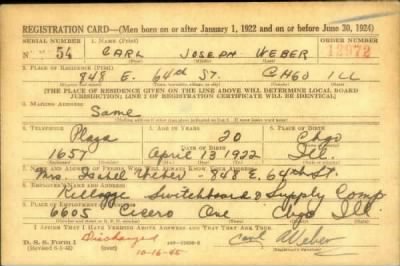 REGISTRATION CARD—(Men born on or after January 1, 1922 and on or before June 30, 1924)
SERIAL NUMBER 1. NAME (Print) ORDER NUMBER
54 CARL JOSEPH WEBER 12972
2. PLACE OF RESIDENCE (Print)
848 E. 64th ST. CHGO ILL
(THE PLACE OF RESIDENCE GIVEN ON THE LINE ABOVE WILL DETERMINE LOCAL BOARD
JURISDICTION; LINE 2 OF REGISTRATION CERTIFICATE WILL BE IDENTICAL)
3. MAILING ADDRESS
Same
4. TELEPHONE 5. AGE IN YEARS 6. PLACE OF BIRTH
Plaza 20 Chgo
1657 April 13 1922 Ill.
7. NAME AND ADDRESS OF PERSON WHO WILL ALWAYS KNOW YOUR ADDRESS
Mrs Weber 848 E. 64th St.
8. EMPLOYER'S NAME AND ADDRESS
Switchboard & Supply Comp
9. PLACE OF EMPLOYMENT OR BUSINESS
6605 Cicero Chgo Ill.
I AFFIRM THAT I HAVE VERIFIED ABOVE ANSWERS AND THAT THEY ARE TRUE.
D. S. S. Form 1 Discharged Carl Weber
10-16-45